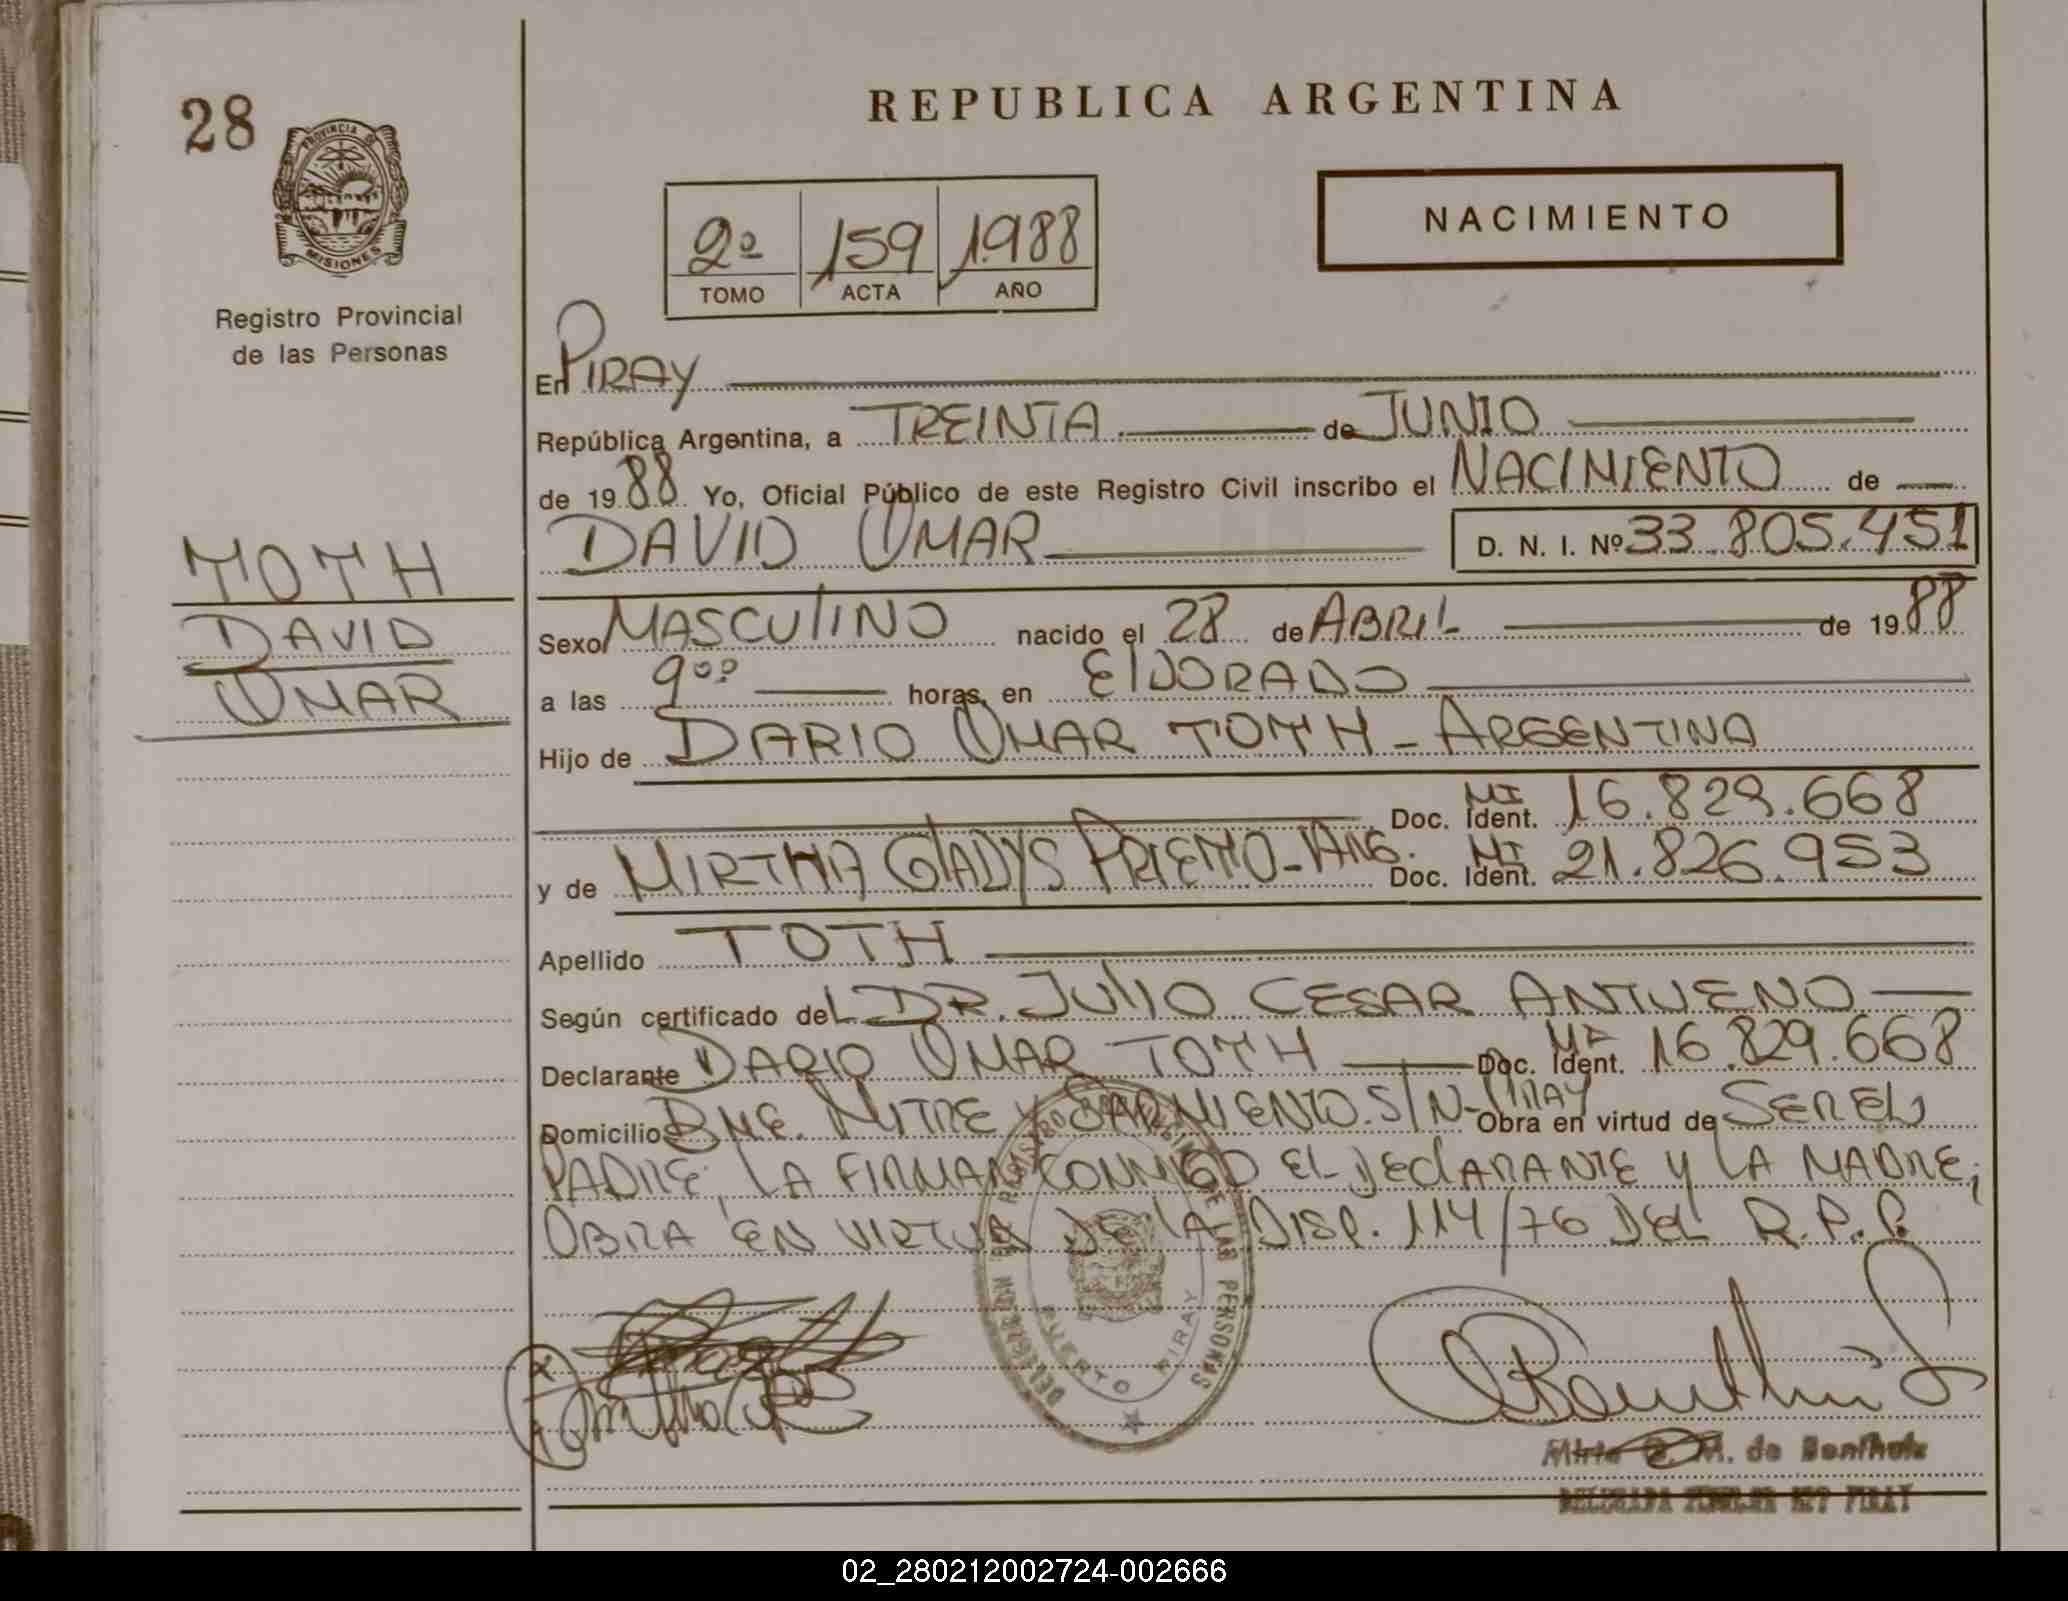 28
PROVINCIA DE
MISIONES
Registro Provincial
de las Personas
TOTH
DAVID
OMAR
REPUBLICA ARGENTINA
2º 159 1988
TOMO ACTA AÑO
NACIMIENTO
En PIRAY
República Argentina, a TREINTA de JUNIO
de 1988 Yo, Oficial Público de este Registro Civil inscribo el NACIMIENTO de
DAVID OMAR D. N. I. Nº 33.805.451
Sexo MASCULINO nacido el 28 de ABRIL de 1988
a las 9ºº horas, en ELDORADO
Hijo de DARIO OMAR TOTH - ARGENTINA
Doc. Ident. MI 16.829.668
y de MIRTHA GLADYS PRIETTO - ARG. Doc. Ident. MI 21.826.953
Apellido TOTH
Según certificado del DR. JULIO CESAR ANTUENO
Declarante DARIO OMAR TOTH Doc. Ident. MI 16.829.668
Domicilio BME. MITRE Y SARMIENTO. S/N - PIRAY Obra en virtud de SER EL
PADRE, LA FIRMAN CONMIGO EL DECLARANTE Y LA MADRE;
OBRA EN VIRTUD DE LA DISP. 114/76 DEL R.P.P.
DE LAS PERSONAS
PUERTO PIRAY
M. de Benthole
PIRAY
02_280212002724-002666